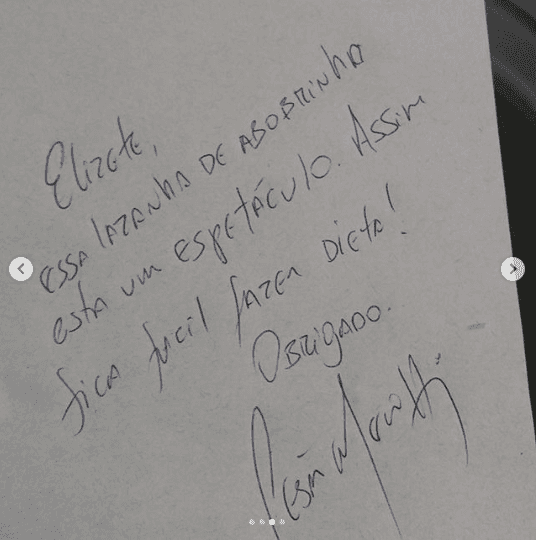 Elizete,
essa lazanha de abobrinha
esta um espetáculo. Assim
fica facil fazer dieta!
Obrigado.